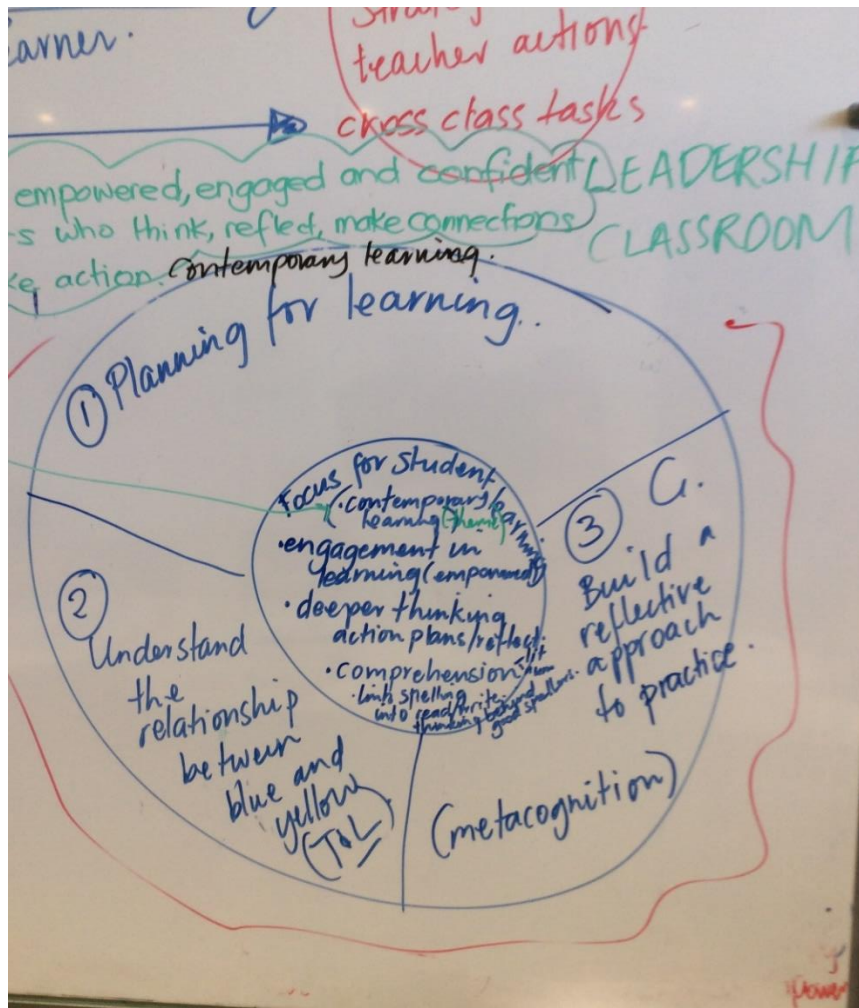 earner.
teacher actions
cross class tasks
empowered, engaged and confident
s who think, reflect, make connections
ke action.
LEADERSHIP
CLASSROOM
Contemporary learning.
① Planning for learning..
Focus for student learning
(• contemporary
learning (theme)
• engagement in
learning (empowered)
• deeper thinking
action plans/reflect.
• comprehension - lit
• link spelling
into read/write.
thinking behind
good spellers.
②
Understand
the
relationship
between
blue and
yellow
(T&L)
③ C.
Build a
reflective
approach
to practice.
(metacognition)